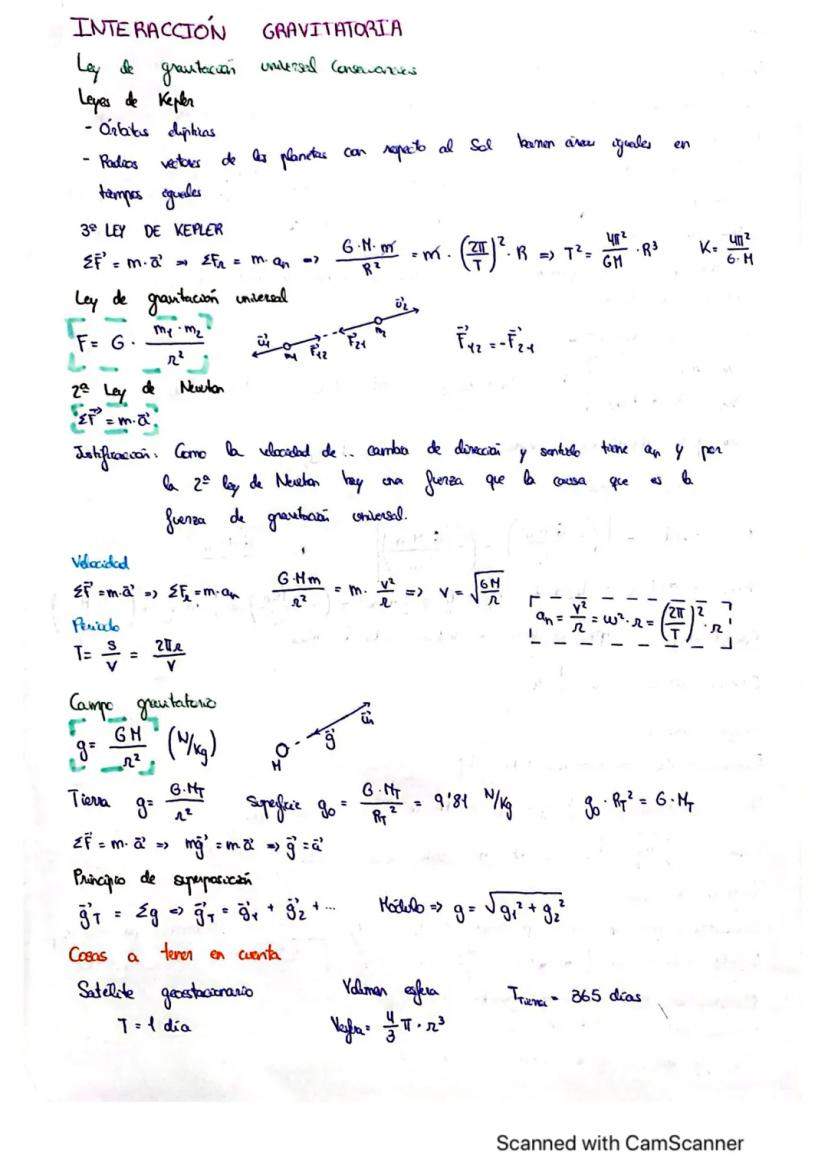 INTERACCIÓN GRAVITATORIA
Ley de gravitación universal
Leyes de Kepler
- Órbitas elípticas
- Radios vectores de los planetas con respecto al Sol barren áreas iguales en
tiempos iguales
3º LEY DE KEPLER
ΣF⃗ = m·a⃗ => ΣFₙ = m·aₙ => G·M·m/R² = m·(2π/T)²·R => T² = 4π²/GM ·R³ K= 4π²/G·M
Ley de gravitación universal
F= G · m₁·m₂/r² u⃗₁ m₁ F⃗₁₂ F⃗₂₁ m₂ u⃗₂ F⃗₁₂ = -F⃗₂₁
2ª Ley de Newton
ΣF⃗ = m·a⃗
Justificación: Como la velocidad de .. cambia de dirección y sentido tiene aₙ y por
la 2ª ley de Newton hay una fuerza que la causa que es la
fuerza de gravitación universal.
Velocidad
ΣF⃗ = m·a⃗ => ΣFₙ = m·aₙ G·Mm/r² = m· v²/r => v = √(GM/r)
aₙ = v²/r = ω²·r = (2π/T)²·r
Periodo
T= s/v = 2πr/v
Campo gravitatorio
g= GM/r² (N/kg) M g⃗ u⃗₁
Tierra g= G·M_T/r² Superficie g₀ = G·M_T/R_T² = 9'81 N/kg g₀·R_T² = G·M_T
ΣF⃗ = m·a⃗ => mg⃗ = ma⃗ => g⃗ = a⃗
Principio de superposición
g⃗_T = Σg => g⃗_T = g⃗₁ + g⃗₂ + ... Módulo => g = √(g₁² + g₂²)
Cosas a tener en cuenta
Satélite geoestacionario Volumen esfera T_Tierra = 365 días
T = 1 día V_esfera = 4/3 π·r³
Scanned with CamScanner